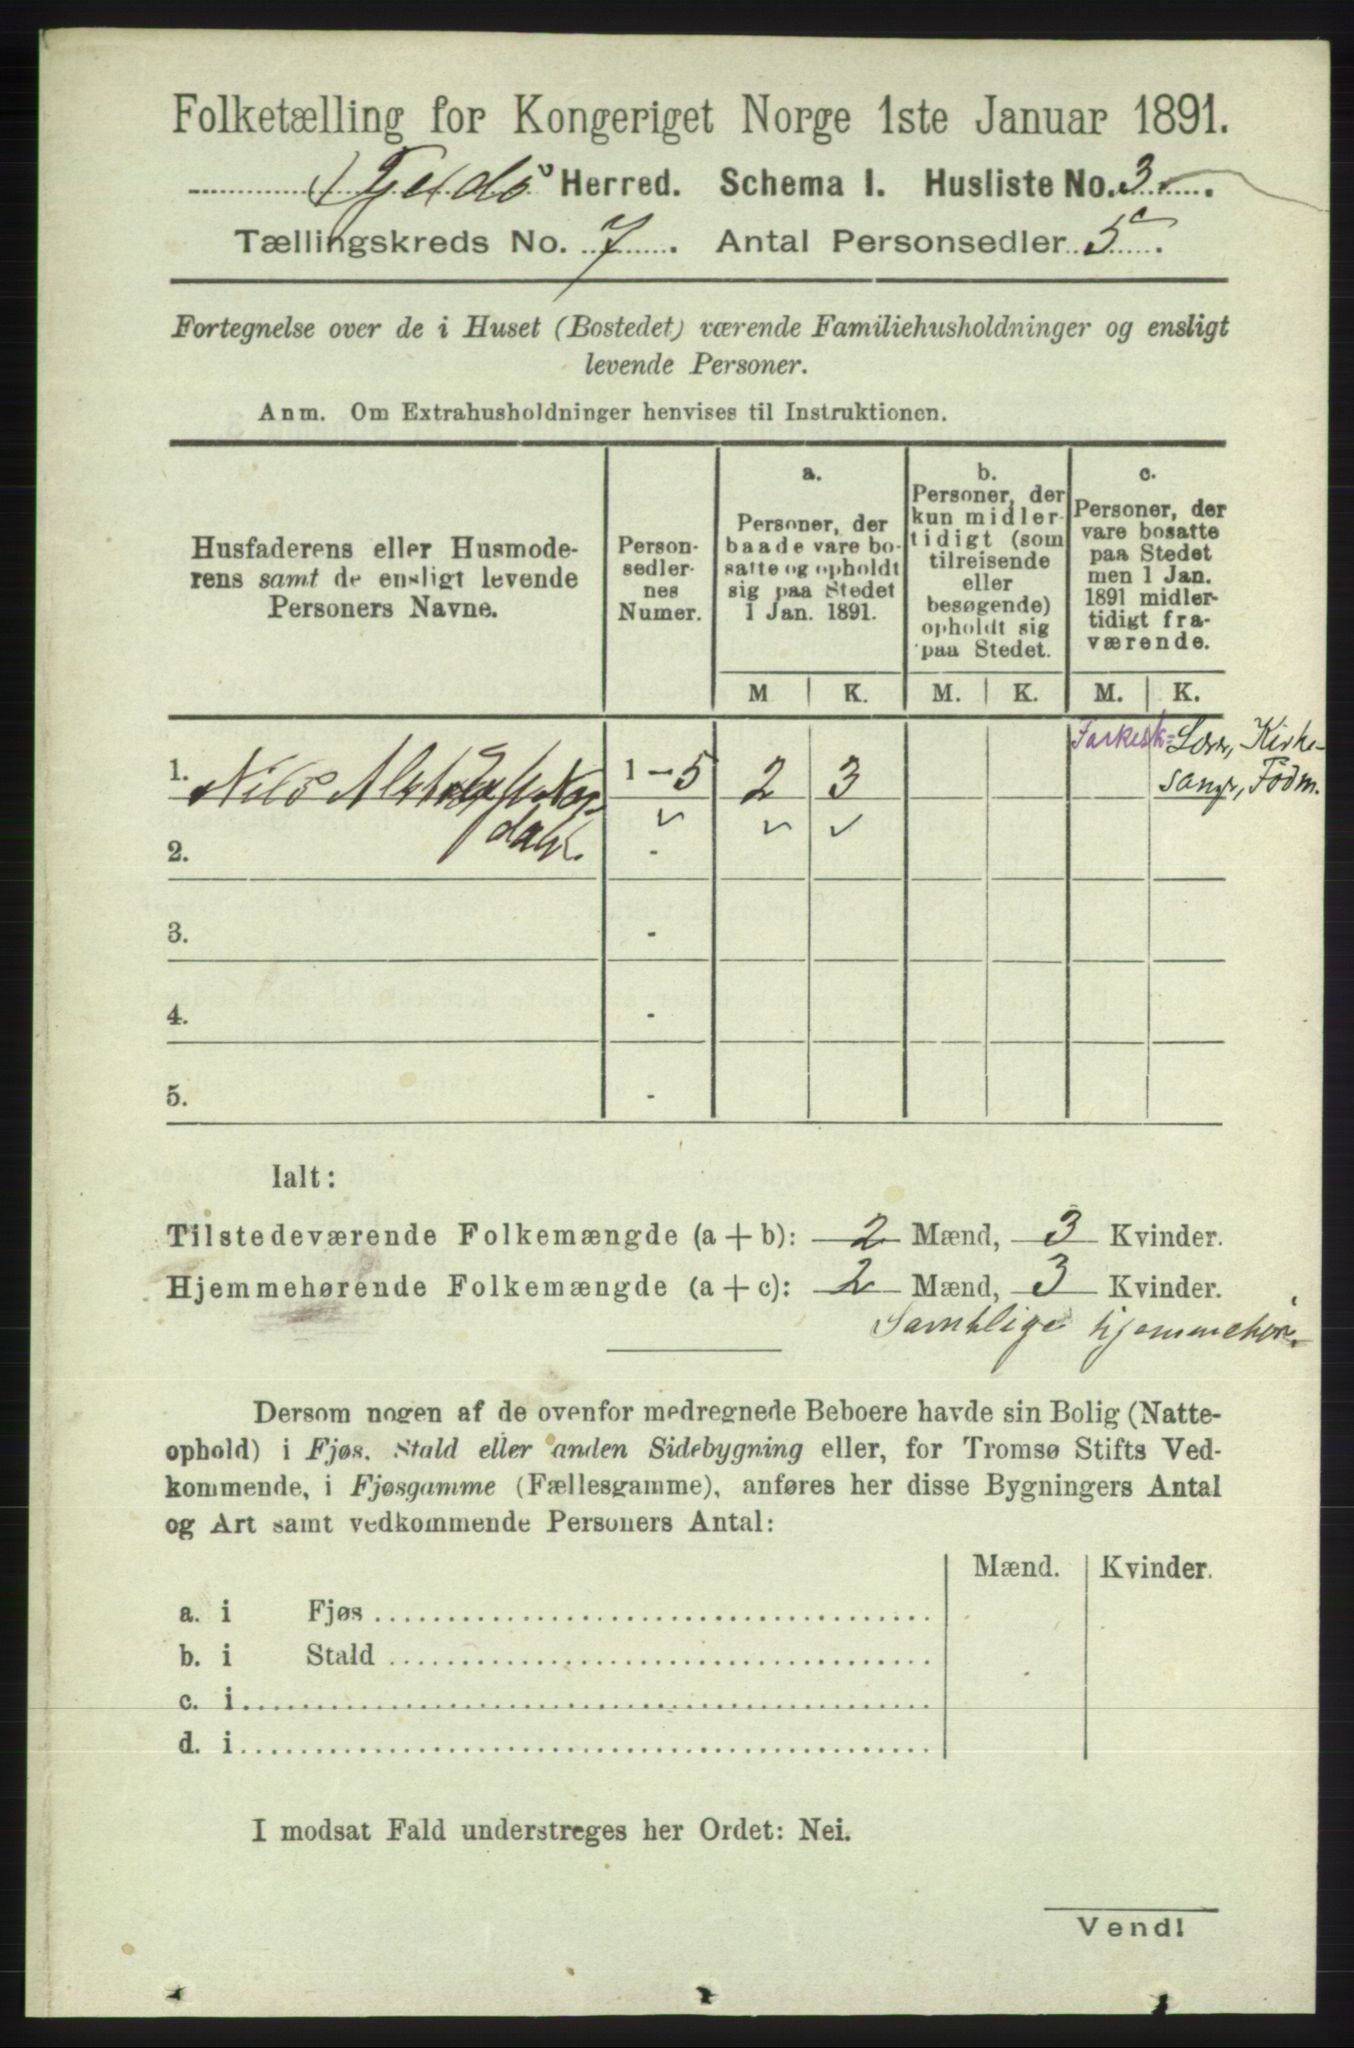 Folketælling for Kongeriget Norge 1ste Januar 1891.
Herred. Schema I. Husliste No. 3.
Tællingskreds No. 7. Antal Personsedler 5.
Fortegnelse over de i Huset (Bostedet) værende Familiehusholdninger og ensligt
levende Personer.
Anm. Om Extrahusholdninger henvises til Instruktionen.
Husfaderens eller Husmode-
rens samt de ensligt levende
Personers Navne.
Person-
sedler-
nes
Numer.
a.
Personer, der
baade vare bo-
satte og opholdt
sig paa Stedet
1 Jan. 1891.
b.
Personer, der
kun midler-
tidigt (som
tilreisende
eller
besøgende)
opholdt sig
paa Stedet.
c.
Personer, der
vare bosatte
paa Stedet
men 1 Jan.
1891 midler-
tidigt fra-
værende.
M K. M. K. M. K.
Kirke-
1. Nils 1-5 2 3
sang,
2. -
3. -
4. -
5. -
Ialt:
Tilstedeværende Folkemængde (a + b): 2 Mænd, 3 Kvinder.
Hjemmehørende Folkemængde (a + c): 2 Mænd, 3 Kvinder.
Samtlige hjemmehør.
Dersom nogen af de ovenfor medregnede Beboere havde sin Bolig (Natte-
ophold) i Fjøs, Stald eller anden Sidebygning eller, for Tromsø Stifts Ved-
kommende, i Fjøsgamme (Fællesgamme), anføres her disse Bygningers Antal
og Art samt vedkommende Personers Antal:
Mænd. Kvinder.
a. i Fjøs
b. i Stald
c. i
d. i
I modsat Fald understreges her Ordet: Nei.
Vend!